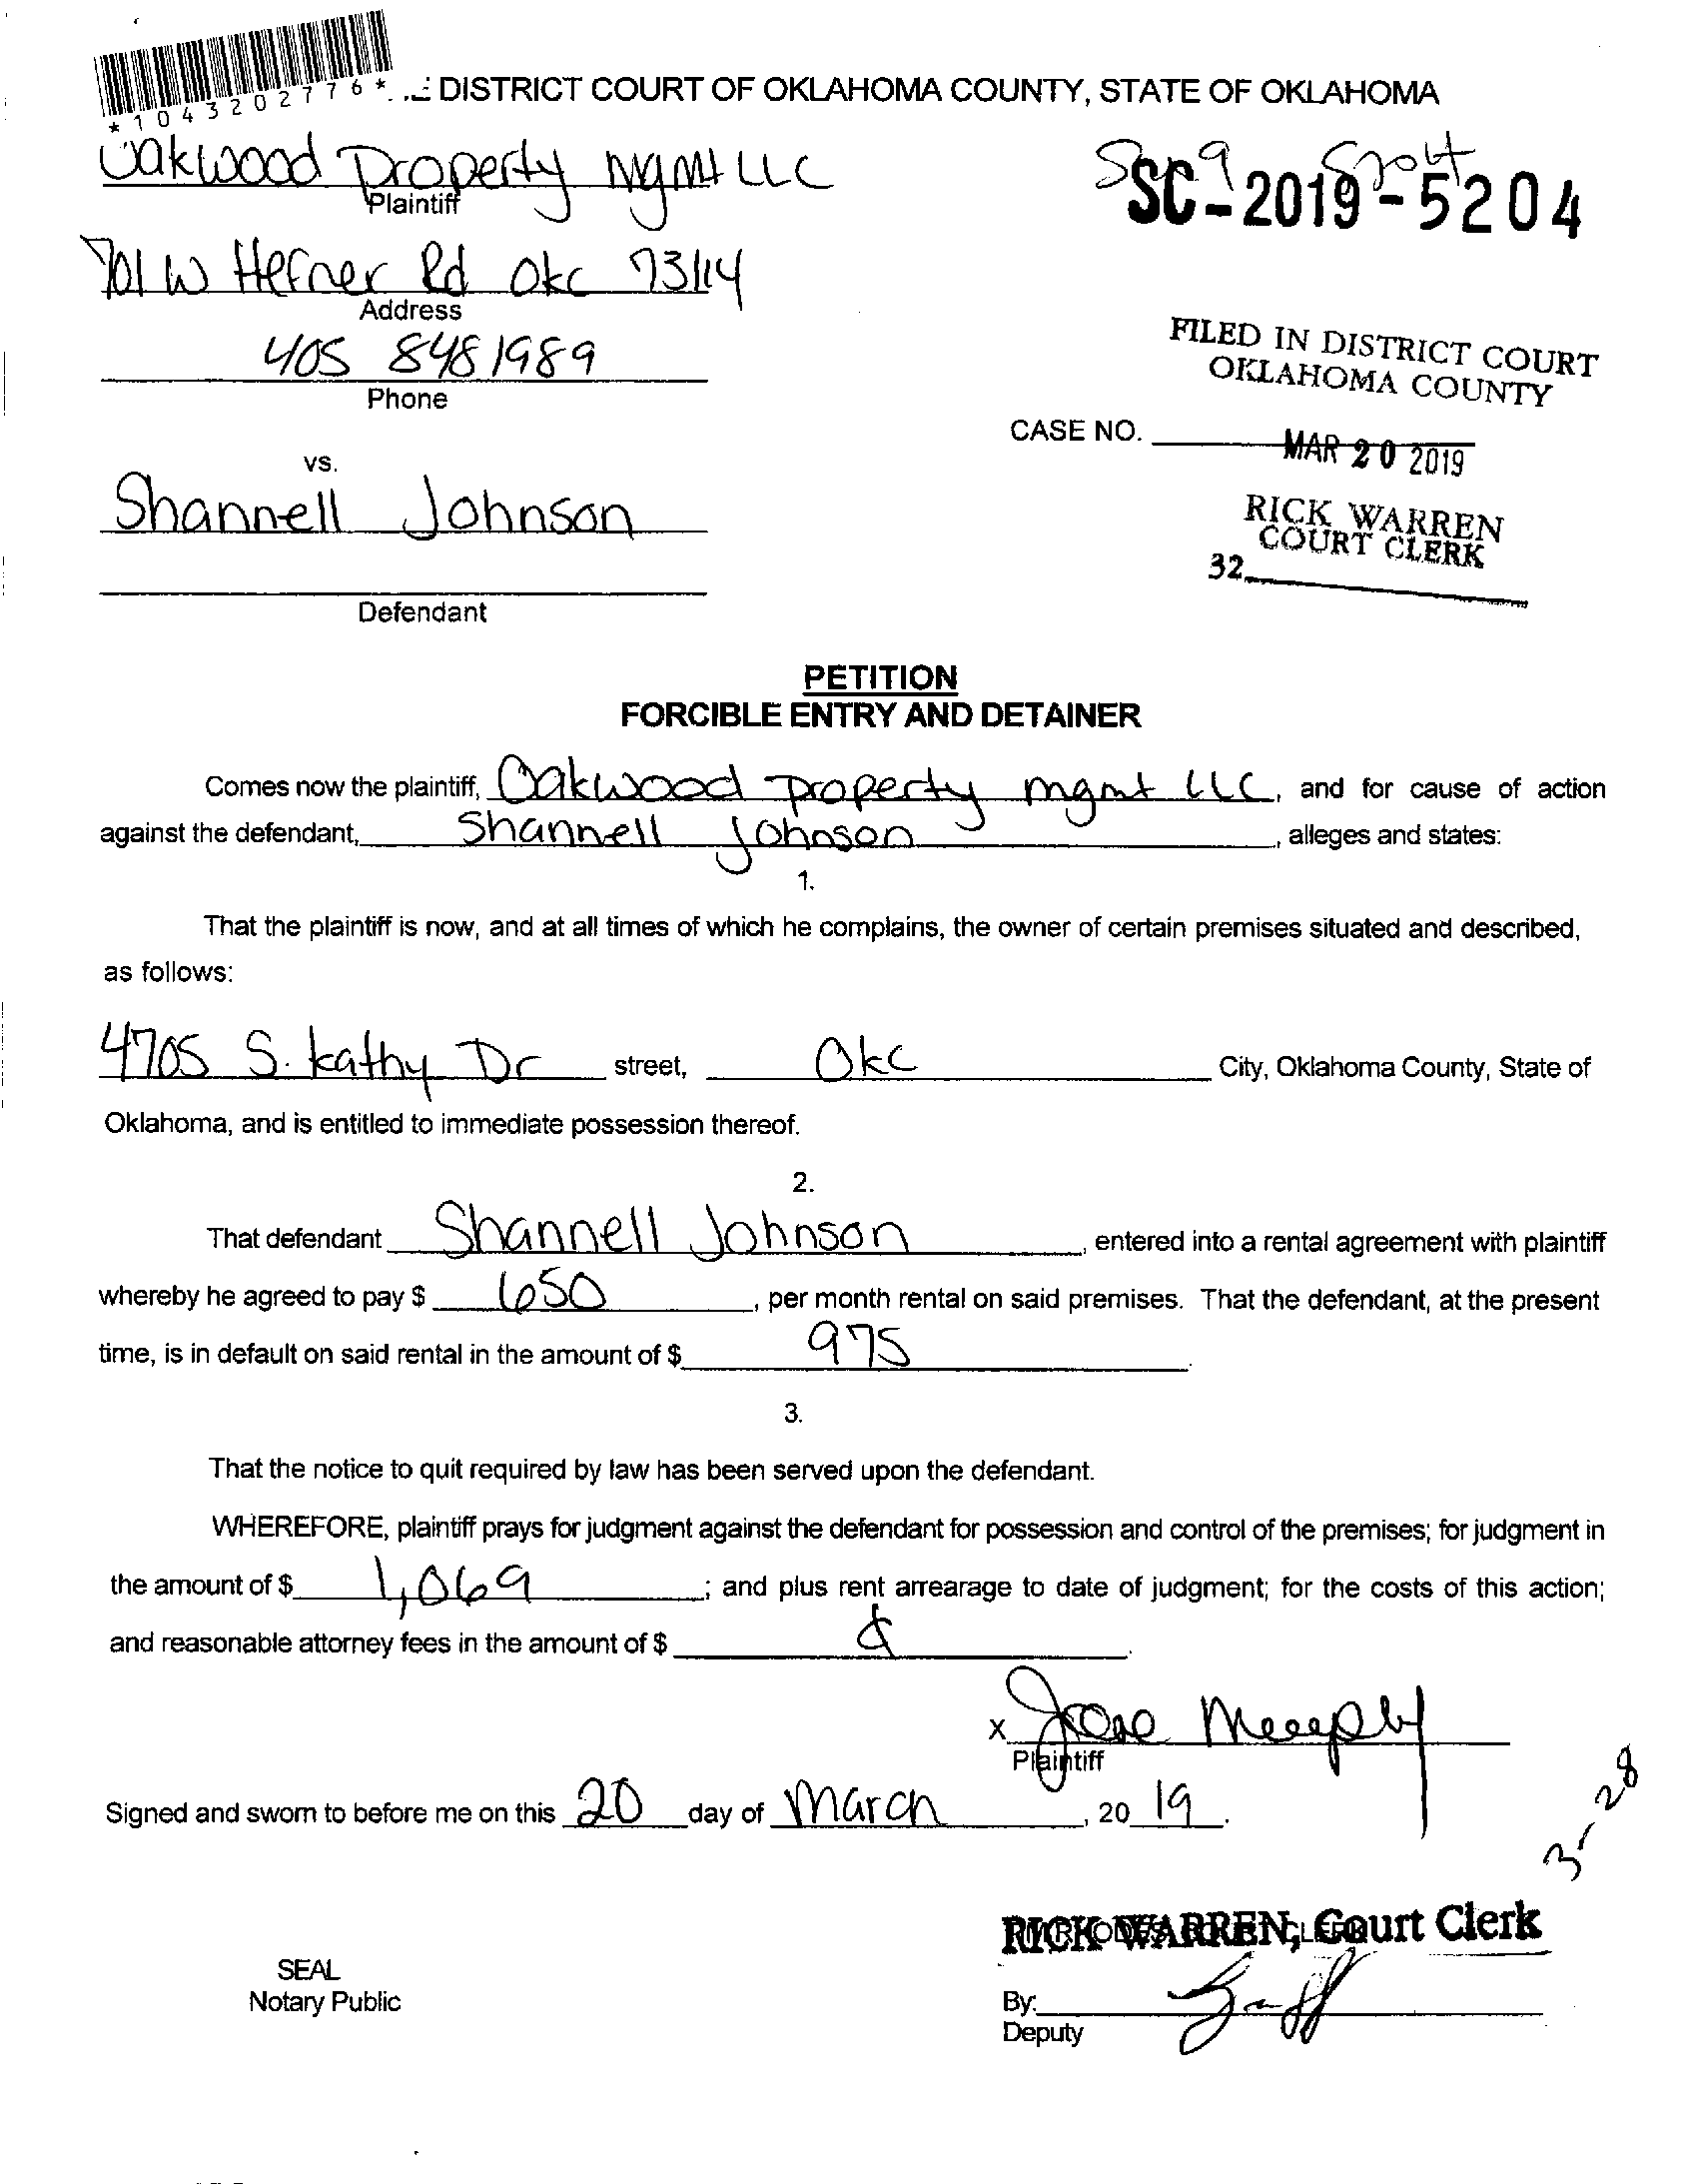 *1043202776*
DISTRICT COURT OF OKLAHOMA COUNTY, STATE OF OKLAHOMA
Oakwood Property Mgmt LLC
Plaintiff
SC-2019-5204
701 W Hefner Rd Okc 73114
Address
405 848 1989
Phone
FILED IN DISTRICT COURT
OKLAHOMA COUNTY
CASE NO.
MAR 20 2019
vs.
Shannell Johnson
RICK WARREN
COURT CLERK
32
Defendant
PETITION
FORCIBLE ENTRY AND DETAINER
Comes now the plaintiff, Oakwood property mgmt LLC, and for cause of action
against the defendant, Shannell Johnson, alleges and states:
1.
That the plaintiff is now, and at all times of which he complains, the owner of certain premises situated and described,
as follows:
4705 S. Kathy Dr street, Okc City, Oklahoma County, State of
Oklahoma, and is entitled to immediate possession thereof.
2.
That defendant Shannell Johnson, entered into a rental agreement with plaintiff
whereby he agreed to pay $ 650, per month rental on said premises. That the defendant, at the present
time, is in default on said rental in the amount of $ 975.
3.
That the notice to quit required by law has been served upon the defendant.
WHEREFORE, plaintiff prays for judgment against the defendant for possession and control of the premises; for judgment in
the amount of $ 1,069; and plus rent arrearage to date of judgment; for the costs of this action;
and reasonable attorney fees in the amount of $ .
X
Plaintiff
Signed and sworn to before me on this 20 day of March, 20 19.
3-28
RICK WARREN, Court Clerk
SEAL
Notary Public
By:
Deputy